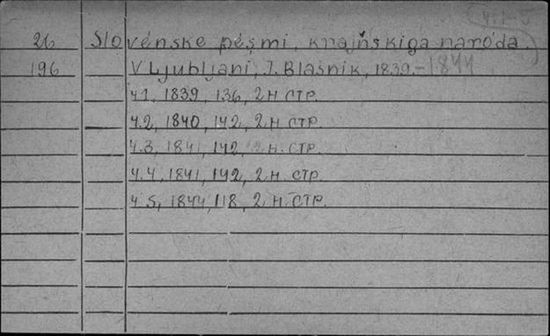 ч.1-5
26 Slovénske pésmi krajnskiga naróda.
196 V Ljubljani, J. Blasnik, 1839-1844
ч.1, 1839, 136, 2 н. стр.
ч.2, 1840, 142, 2 н. стр.
ч.3, 1841, 142, 2 н. стр.
ч.4, 1841, 142, 2 н. стр.
ч.5, 1844, 118, 2 н. стр.